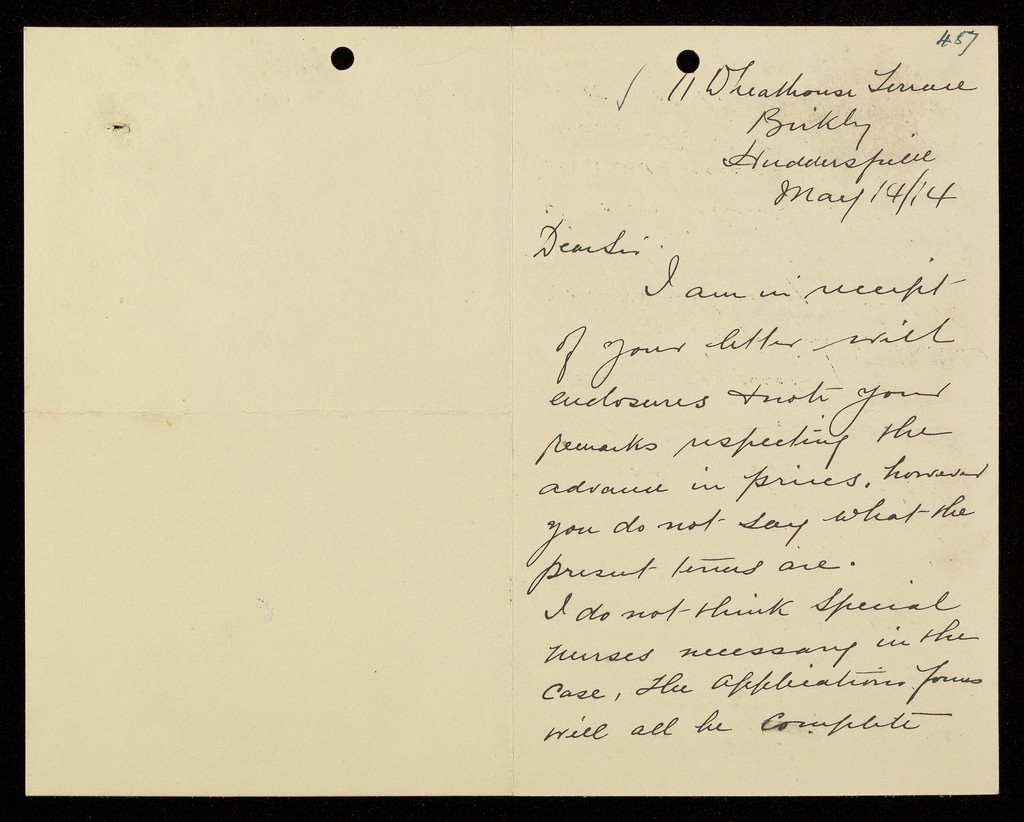 457
11 Wheathouse Terrace
Birkby
Huddersfield
May 14/14
Dear Sir.
I am in receipt
of your letter with
enclosures & note your
remarks respecting the
advance in prices, however
you do not say what the
present terms are.
I do not think special
nurses necessary in the
case, the applications forms
will all be complete